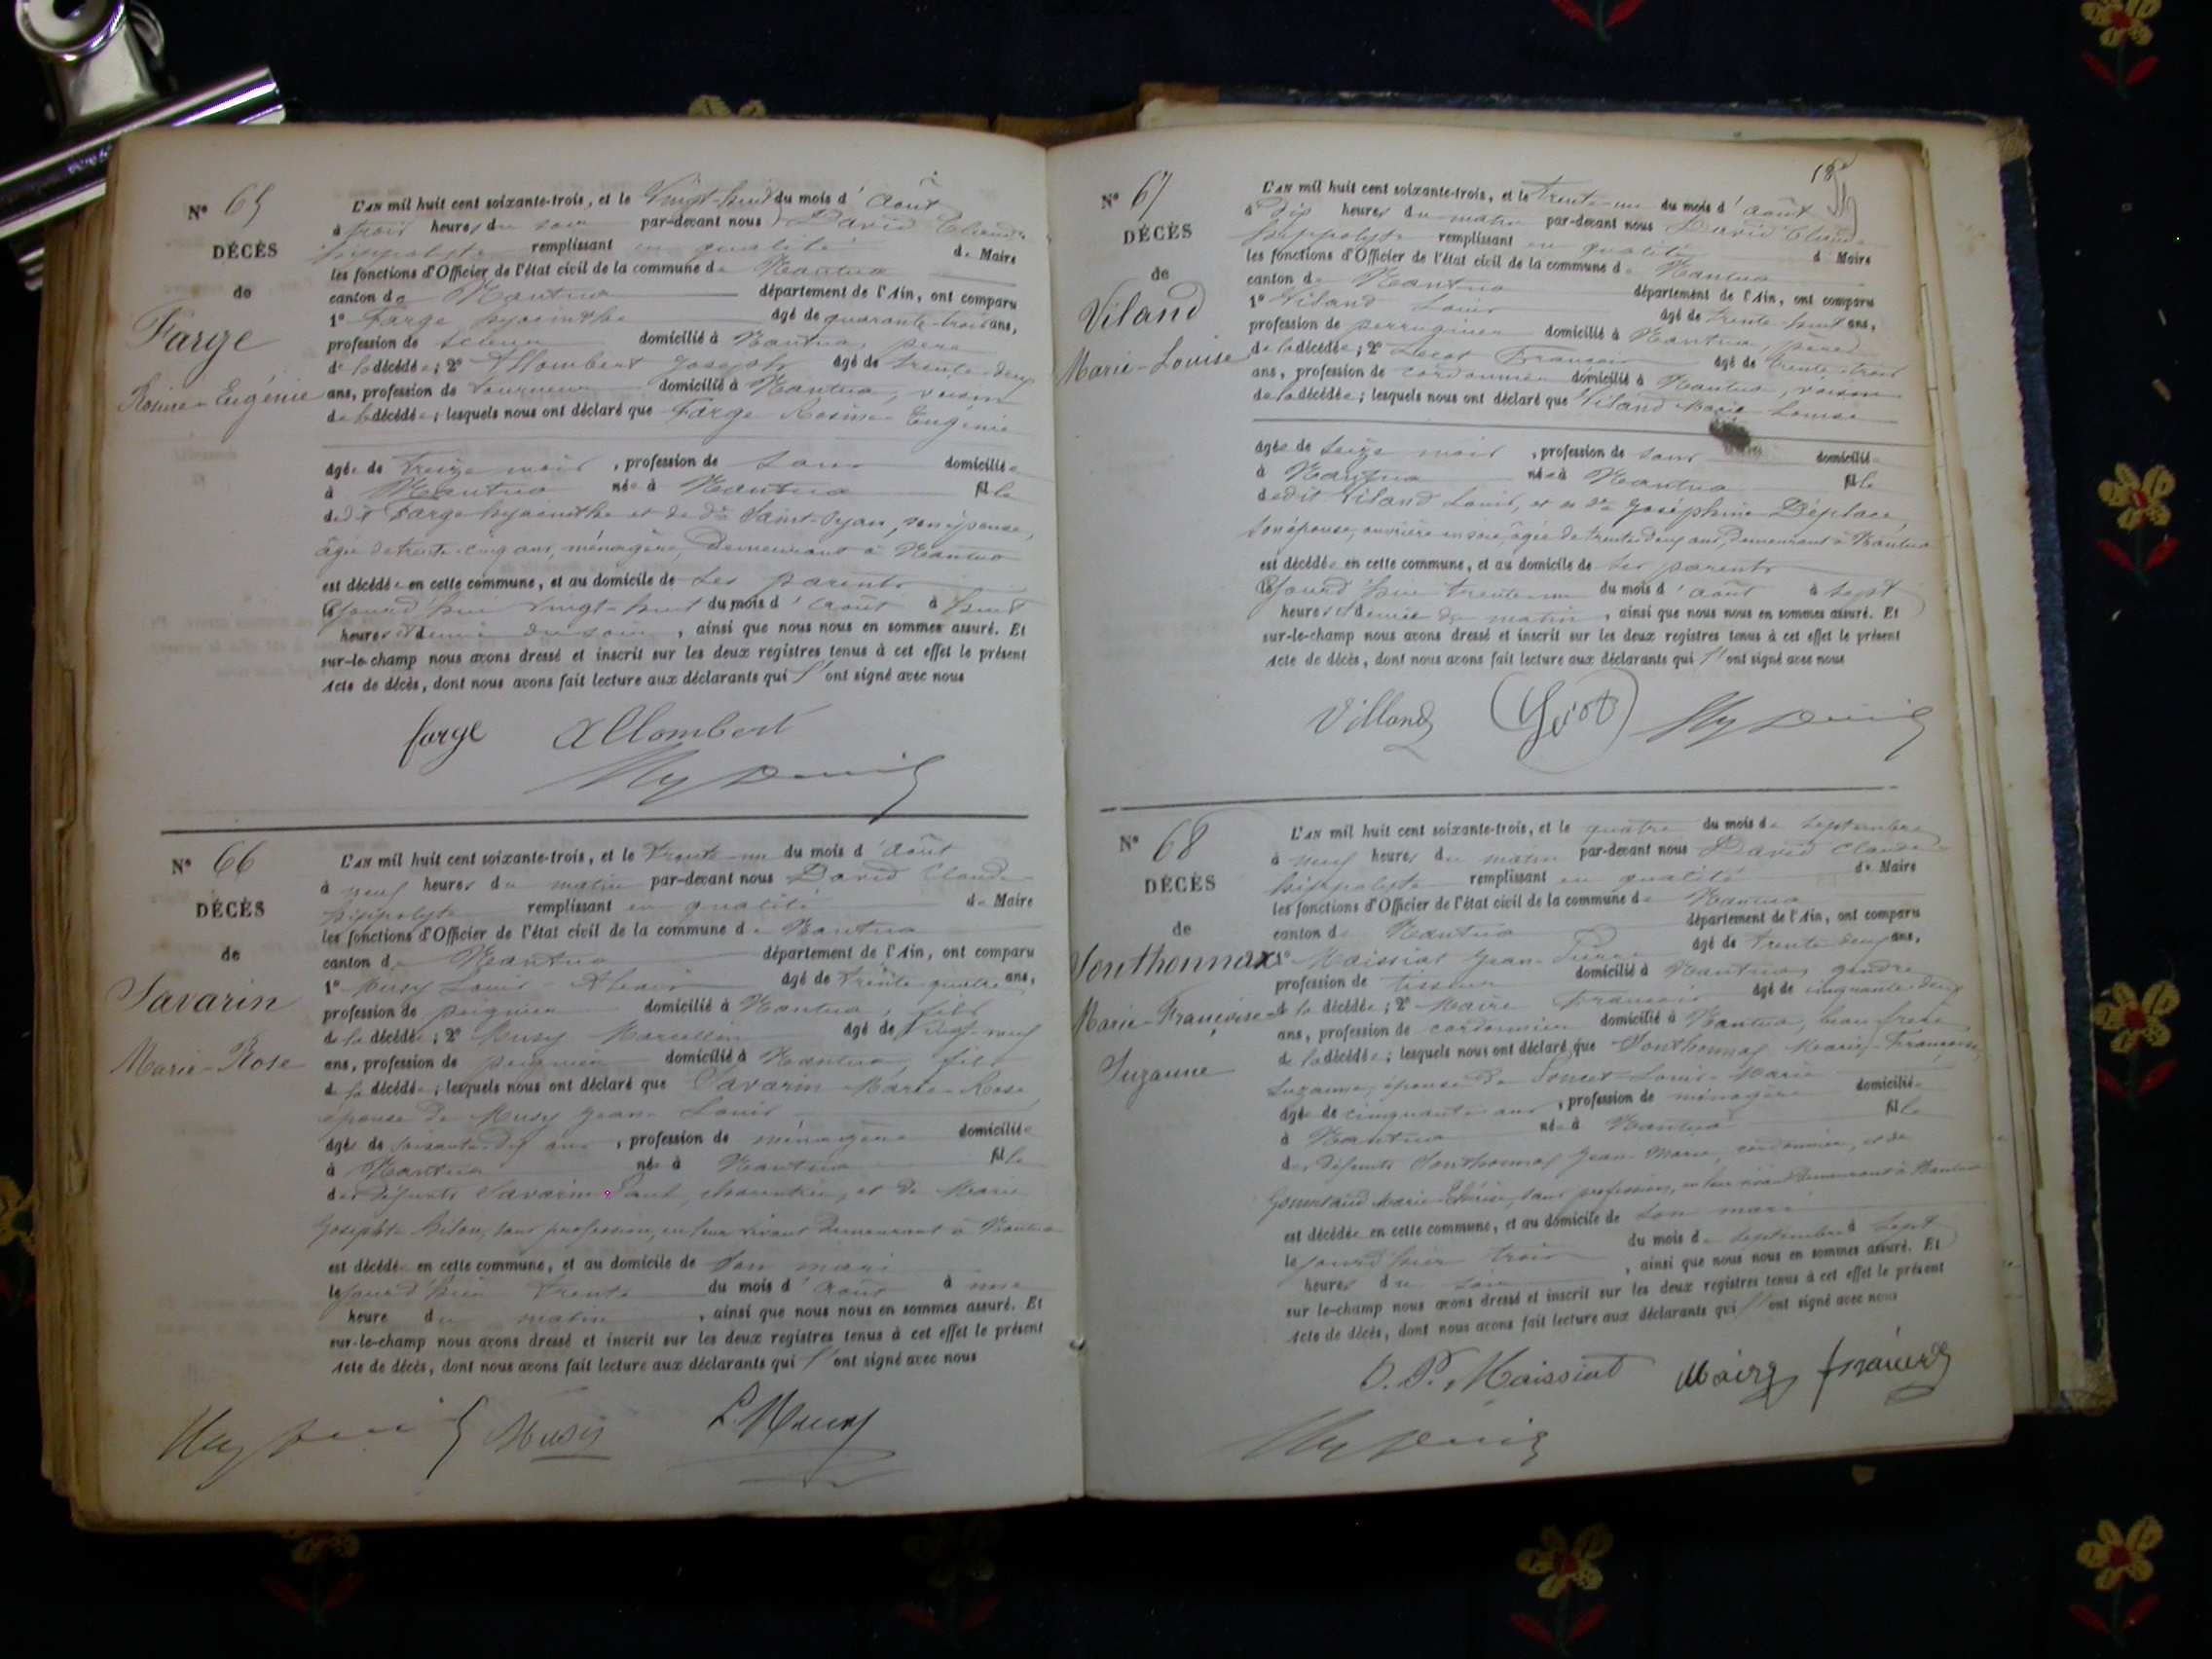 N° 65
DÉCÈS
de
Farge
Rosine-Eugénie
L'AN mil huit cent soixante-trois, et le Vingt-huit du mois d'Août
à trois heures du soir par-devant nous David Claude
hippolyte remplissant en qualité de Maire
les fonctions d'Officier de l'état civil de la commune de Nantua
canton de Nantua département de l'Ain, ont comparu
1° Farge hyacinthe âgé de quarante-trois ans,
profession de scieur domicilié à Nantua, père
de la décédée; 2° Allombert Joseph âgé de trente-deux
ans, profession de tourneur domicilié à Nantua, voisin
de la décédée; lesquels nous ont déclaré que Farge Rosine Eugénie
âgée de treize mois, profession de sans domiciliée
à Nantua née à Nantua fille
de dit Farge hyacinthe et de de Saint-Oyan, son épouse,
âgée de trente-cinq ans, ménagère, demeurant à Nantua
est décédée en cette commune, et au domicile de ses parents
le jourd'hui vingt-huit du mois d'août à huit
heures et demie du soir, ainsi que nous nous en sommes assuré. Et
sur-le-champ nous avons dressé et inscrit sur les deux registres tenus à cet effet le présent
Acte de décès, dont nous avons fait lecture aux déclarants qui l'ont signé avec nous
farge allombert
N° 66
DÉCÈS
de
Savarin
Marie-Rose
L'AN mil huit cent soixante-trois, et le Trente-un du mois d'Août
à neuf heures du matin par-devant nous David Claude
hippolyte remplissant en qualité de Maire
les fonctions d'Officier de l'état civil de la commune de Nantua
canton de Nantua département de l'Ain, ont comparu
1° Musy Louis âgé de trente-quatre ans,
profession de peignier domicilié à Nantua, fils
de la décédée; 2° Musy Marcellin âgé de vingt-neuf
ans, profession de peignier domicilié à Nantua, fils
de la décédée; lesquels nous ont déclaré que Savarin Marie-Rose
épouse de Musy Jean-Louis
âgée de soixante-dix ans, profession de ménagère domiciliée
à Nantua née à Nantua fille
des défunts Savarin Paul, charcutier, et de Marie
Josephte, sans profession, en leur vivant demeurant à Nantua
est décédée en cette commune, et au domicile de son mari
le jourd'hier trente du mois d'août à une
heure du matin, ainsi que nous nous en sommes assuré. Et
sur-le-champ nous avons dressé et inscrit sur les deux registres tenus à cet effet le présent
Acte de décès, dont nous avons fait lecture aux déclarants qui l'ont signé avec nous
Musy L. Musy
N° 67
DÉCÈS
de
Viland
Marie-Louise
L'AN mil huit cent soixante-trois, et le Trente-un du mois d'Août
à dix heures du matin par-devant nous David Claude
hippolyte remplissant en qualité d Maire
les fonctions d'Officier de l'état civil de la commune de Nantua
canton de Nantua département de l'Ain, ont comparu
1° Viland Louis âgé de trente-huit ans,
profession de perruquier domicilié à Nantua, père
de la décédée; 2° Lecot François âgé de trente-trois
ans, profession de cordonnier domicilié à Nantua, voisin
de la décédée; lesquels nous ont déclaré que Viland Marie Louise
âgée de seize mois, profession de sans domiciliée
à Nantua née à Nantua fille
de dit Viland Louis, et de de Joséphine Déplace,
son épouse, ouvrière en soie, âgée de trente-deux ans, demeurant à Nantua
est décédée en cette commune, et au domicile de ses parents
le jourd'hui trente-un du mois d'août à sept
heures et demie du matin, ainsi que nous nous en sommes assuré. Et
sur-le-champ nous avons dressé et inscrit sur les deux registres tenus à cet effet le présent
Acte de décès, dont nous avons fait lecture aux déclarants qui l'ont signé avec nous
Villand
N° 68
DÉCÈS
de
Sonthonnax
Marie-Françoise
Suzanne
L'AN mil huit cent soixante-trois, et le quatre du mois de Septembre
à neuf heures du matin par-devant nous David Claude
hippolyte remplissant en qualité de Maire
les fonctions d'Officier de l'état civil de la commune de Nantua
canton de Nantua département de l'Ain, ont comparu
1° Maissiat Jean-Pierre âgé de trente-deux ans,
profession de tisseur domicilié à Nantua, gendre
de la décédée; 2° Maire François âgé de cinquante-deux
ans, profession de cordonnier domicilié à Nantua, beau frère
de la décédée; lesquels nous ont déclaré que Sonthonnax Marie-Françoise,
Suzanne, épouse de Poncet Louis-Marie
âgée de cinquante ans, profession de ménagère domiciliée
à Nantua née à Nantua fille
des défunts Sonthonnax Jean-Marie, cordonnier, et de
Marie-Thérèse, sans profession, en leur vivant demeurant à Nantua
est décédée en cette commune, et au domicile de son mari
le jourd'hier trois du mois de septembre à sept
heures du soir, ainsi que nous nous en sommes assuré. Et
sur-le-champ nous avons dressé et inscrit sur les deux registres tenus à cet effet le présent
Acte de décès, dont nous avons fait lecture aux déclarants qui l'ont signé avec nous
J. P. Maissiat Maire françois